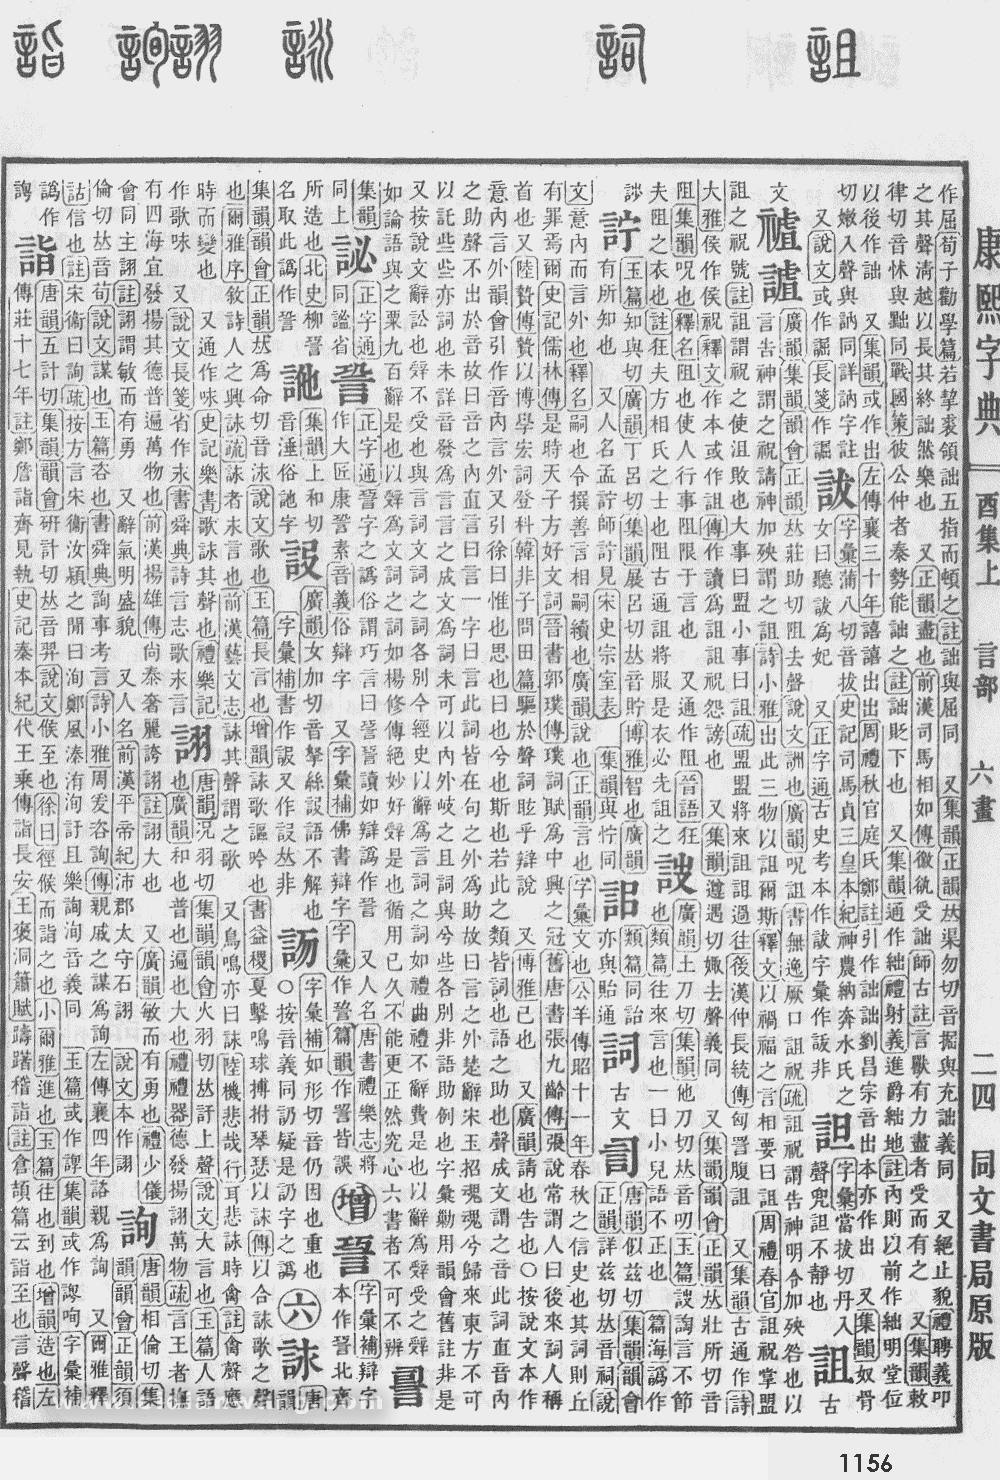 詛 詞 詠 詡 詢 詣
康熙字典 酉集上 言部 六畫 二四 同文書局原版
作屈荀子勸學篇若挈裘領詘五指而頓之註詘與屈同 又集韻正韻𠀤渠勿切音掘與充詘義同 又絕止貌禮聘義叩
之其聲清越以長其終詘然樂也 又正韻盡也前漢司馬相如傳徼𠊬受詘師古註言獸有力盡者受而有之 又集韻敕
律切音怵與黜同戰國策彼公仲者秦勢能詘之註詘貶下也 又集韻通作絀禮射義進爵絀地註內則以前作絀明堂位
以後作詘 又集韻或作出左傳襄三十年譆譆出出周禮秋官庭氏鄭註引作詘詘劉昌宗音出本亦作出 又集韻奴骨
切嫩入聲與訥同詳訥字註 詙字彙蒲八切音拔史記司馬貞三皇本紀神農納奔水氏之 詚字彙當拔切丹入
又說文或作誳長箋作𧩱 女曰聽詙爲妃 又正字通古史考本作詙字彙作詙非 聲兜詚不靜也 詛古
文 廣韻集韻韻會正韻𠀤莊助切阻去聲說文詶也廣韻呪詛書無逸厥口詛祝疏詛祝謂告神明令加殃咎也以
言告神謂之祝請神加殃謂之詛詩小雅出此三物以詛爾斯釋文以禍福之言相要曰詛周禮春官詛祝掌盟
詛之祝號註詛謂祝之使沮敗也大事曰盟小事曰詛疏盟盟將來詛詛過往後漢仲長統傳匈詈腹詛 又集韻古通作詩
大雅侯作侯祝釋文作本或作詛傳作讀爲詛詛祝怨謗也 又集韻遵遇切娵去聲義同 又集韻韻會正韻𠀤壯所切音
阻集韻呪也釋名阻也使人行事阻限于言也 又通作阻晉語狂 詜廣韻土刀切集韻他刀切𠀤音叨玉篇詜詢言不節
夫阻之衣也註狂夫方相氏之士也阻古通詛將服是衣必先詛之 也類篇往來言也一曰小兒語不正也 篇海譌作
詝玉篇知與切廣韻丁呂切集韻展呂切𠀤音貯博雅智也廣韻 詔類篇同詒 詞古文㕜唐韻似兹切集韻韻會
有所知也 又人名孟詝師詝見宋史宗室表 集韻與㤖同 亦與貽通 正韻詳兹切𠀤音祠說
文意內而言外也釋名嗣也令撰善言相嗣續也廣韻說也正韻言也字彙文也公羊傳昭十一年春秋之信史也其詞則丘
有罪焉爾史記儒林傳是時天子方好文詞晉書郭璞傳璞詞賦爲中興之冠舊唐書張九齡傳張說常謂人曰後來詞人稱
首也 又陸贄傳贄以博學宏詞登科韓非子問田篇驅於聲詞眩乎辯說 又博雅已也 又廣韻請也告也○按說文本作
意內言外韻會引作音內言外又引徐曰惟也思也曰也兮也斯也若此之類皆詞也語之助也聲成文謂之音此詞直音內
之助聲不出於音故曰音之內直言曰言一字曰言此詞皆在句之外爲助故曰言之外楚辭宋玉招魂魂兮歸來東方不可
以託些些亦詞也未詳音發爲言言之成文爲詞未可以內外岐之且詞與兮些各別非語助例也字彙勦用韻會舊註非是
又按說文辭訟也辤不受也與言詞文詞之詞各別今經史以辭爲言詞之詞如禮曲禮不辭費是也以辭爲辤受之辤
如論語與之粟九百辭是也以辤爲文詞之詞如楊修傳絕妙好辤是也循用已久不能更正然究心六書者不可不辨
集韻 詏正字通 正字通詧字之譌俗謂巧言曰詧詧讀如辯譌作詧 又人名唐書禮樂志將 增 字彙補辯字
同上 同謐省 作大匠康詧素音義俗辯字 又字彙補佛書辯字字彙作詧篇韻作詈皆誤 本作詧北齊
所造也北史柳詧 訑集韻上和切 廣韻女加切音拏絲䛏語不解也 訒字彙補如形切音仍因也重也 六 詠唐
名取此譌作詧 音涶俗訑字 字彙補書作䛏又作訤𠀤非 ○按音義同訒疑是訒字之譌 韻
集韻韻會正韻𠀤爲命切音泳說文歌也玉篇長言也增韻詠歌謳吟也書益稷戛擊鳴球搏拊琴瑟以詠傳以合詠歌之聲
也爾雅序敘詩人之興詠疏詠者永言也前漢藝文志詠其聲謂之歌 又鳥鳴亦曰詠陸機悲哉行耳悲詠時禽註禽聲應
時而變也 又通作咏史記樂書歌詠其聲也禮樂記 詡唐韻況羽切集韻韻會火羽切𠀤訏上聲說文大言也玉篇人語
作歌咏 又說文長箋省作永書舜典詩言志歌永言 也廣韻和也普也遍也大也禮禮器德發揚詡萬物疏言王者撫
有四海宜發揚其德普遍萬物也前漢揚雄傳尚泰奢麗誇詡註詡大也 又廣韻敏而有勇也禮少儀
會同主詡註詡謂敏而有勇 又辭氣明盛貌 又人名前漢平帝紀沛郡太守石詡 說文本作詡 詢韻會正韻須
倫切𠀤音荀說文謀也玉篇咨也書舜典詢事考言詩小雅周爰咨詢傳親戚之謀爲詢左傳襄四年諮親爲詢 又爾雅釋
詁信也註宋衞曰詢疏按方言宋衞汝潁之閒曰洵鄭風溱洧洵訏且樂詢洵音義同 玉篇或作諄集韻或作𧫬咰字彙補
譌作 詣唐韻五計切集韻韻會硏計切𠀤音羿說文候至也徐曰徑候而詣之也小爾雅進也玉篇往也到也增韻造也左
傳莊十七年註鄭詹詣齊見執史記秦本紀代王乘傳詣長安王褒洞簫賦躊躇稽詣註倉頡篇云詣至也言聲稽
1156